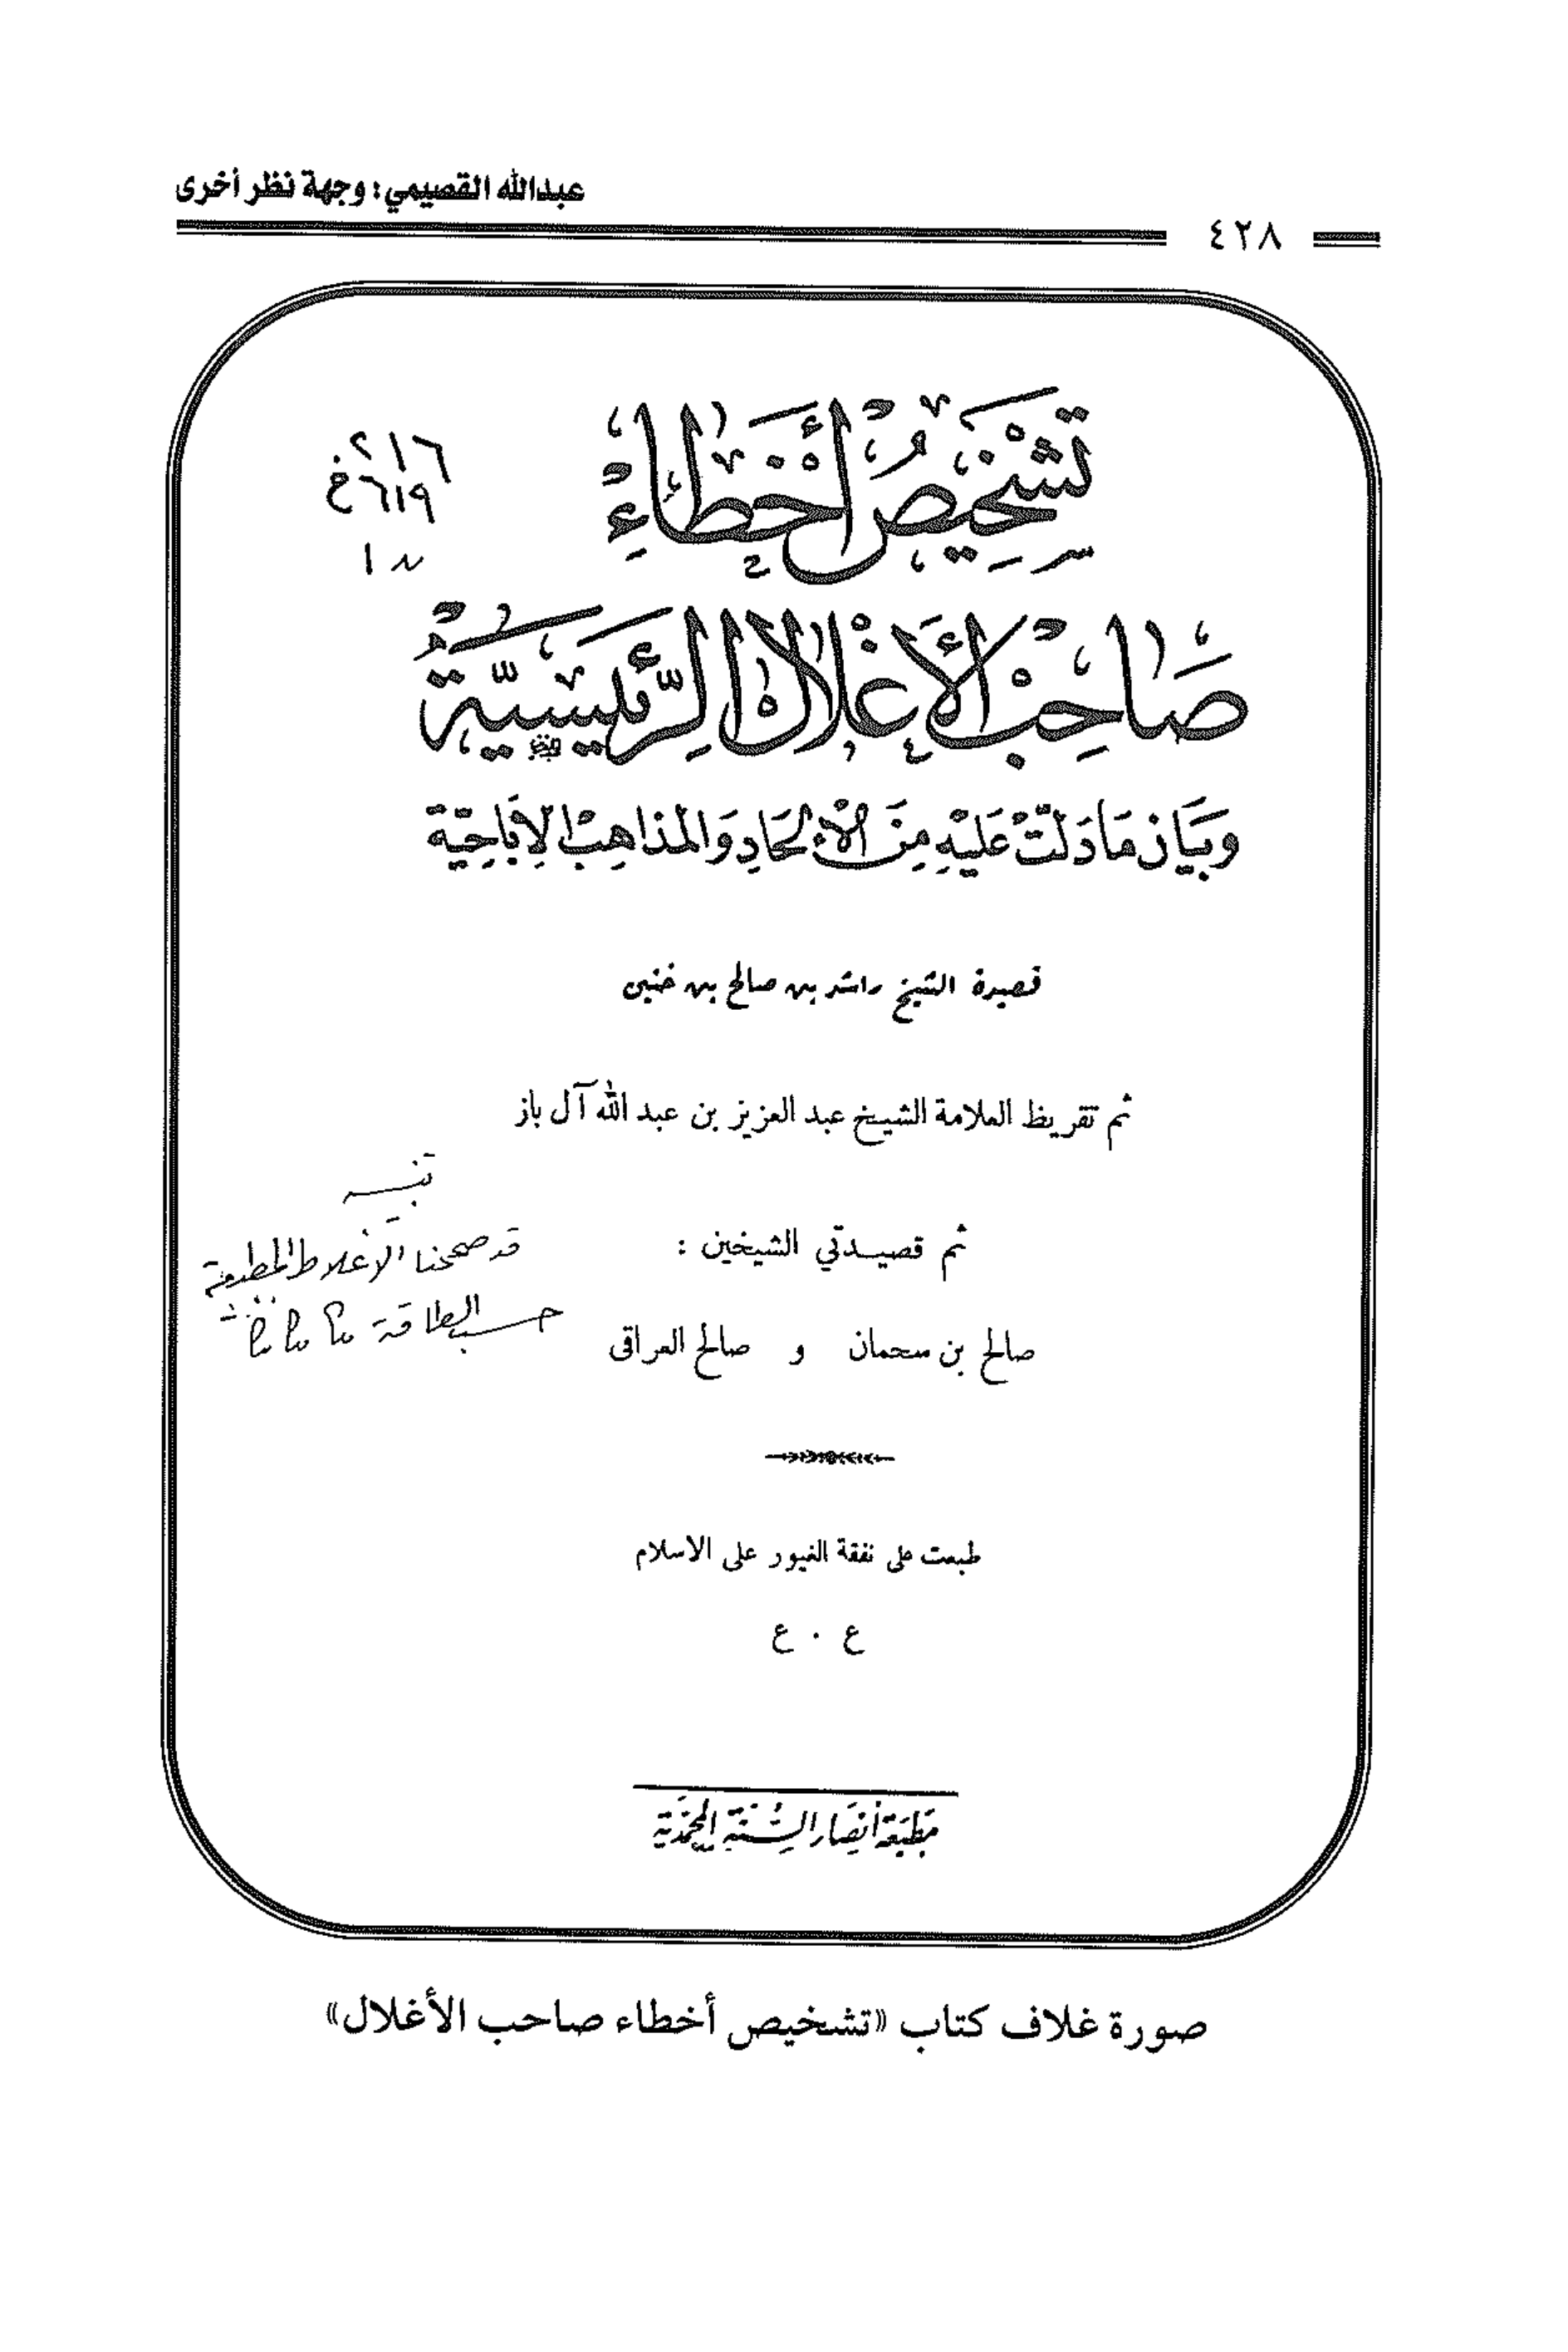 عبدالله القصيمي: وجهة نظر أخرى
٤٢٨
تَشْخِيصُ أَخْطَاءِ
٢١٦
٦١٩
صَاحِبِ الأَغْلَالِ الرَّئِيسِيَّةِ
وَبَيَانُ مَا دَلَّتْ عَلَيْهِ مِنَ الْإِلْحَادِ وَالْمَذَاهِبِ الْإِبَاحِيَّة
قصيدة الشيخ راشد بن صالح بن خنين
ثم تقريظ العلامة الشيخ عبد العزيز بن عبد الله آل باز
ثم قصيدتي الشيخين :
صالح بن سحمان و صالح العراقى
تنبيه
قد صححنا الأغلاط المطبعية
حسب الطاقة
طبعت على نفقة الغيور على الاسلام
ع . ع
مَطبَعَة أنصَار السُّنَّة المحمَّديَّة
صورة غلاف كتاب «تشخيص أخطاء صاحب الأغلال»